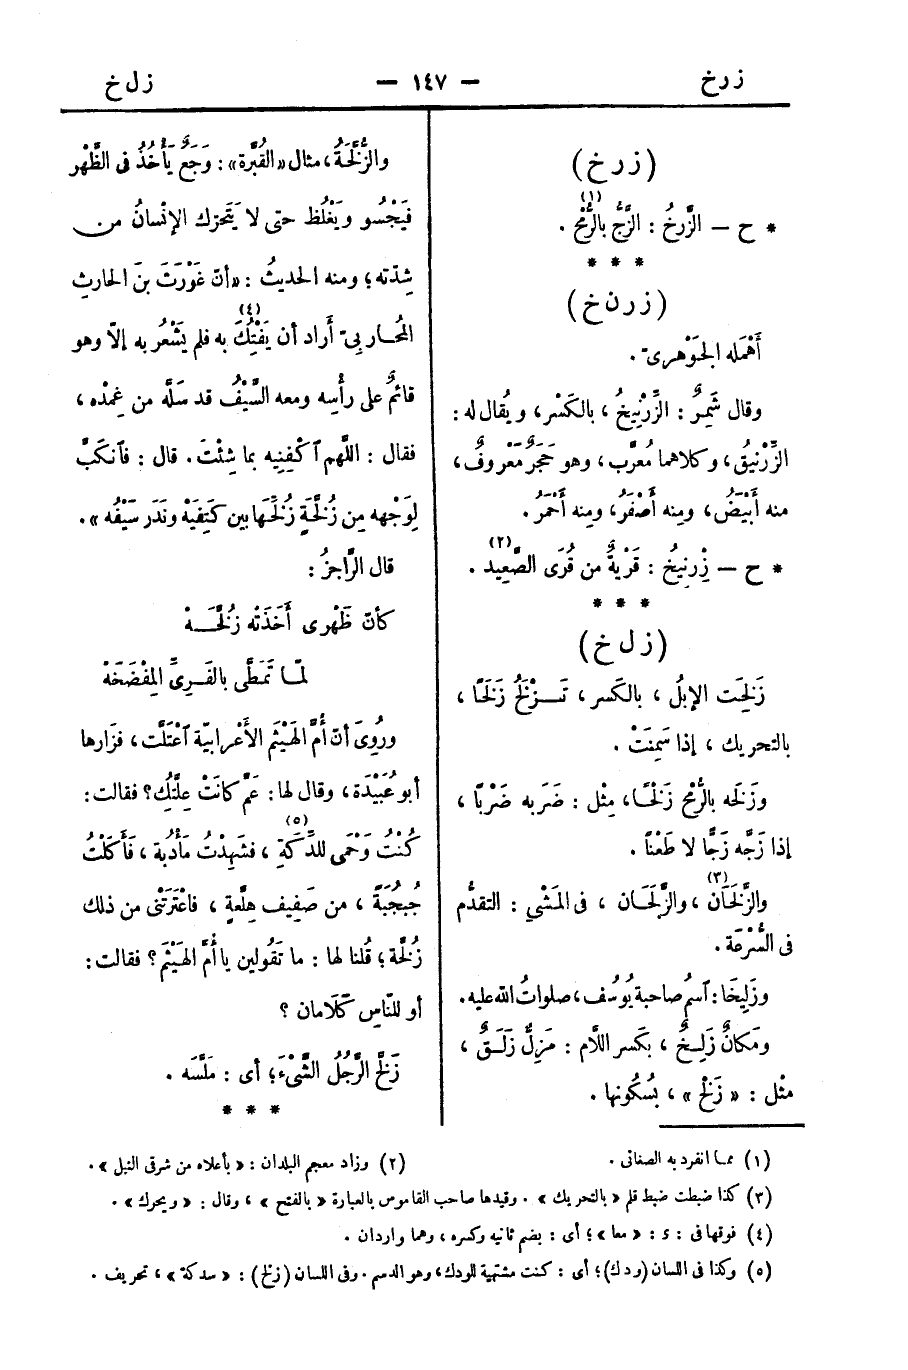 زرخ — ١٤٧ — زلخ
(زرخ)
* ح — الزَّرخُ : الزَّجُّ بالرُّمْحِ (١) .
* * *
(زرنخ)
أَهْمَله الجَوْهرىّ .
وقال شَمِرٌ : الزِّرْنِيخُ ، بالكَسْر ، ويُقال له :
الزِّرْنيقُ ، وكلاهما مُعرَّب ، وهو حَجَرٌ مَعْروفٌ ،
منه أَبْيَضُ ، ومِنه أصْفَرُ ، ومِنه أَحْمَرُ .
* ح — زِرْنِيخُ : قَرْيةٌ من قُرَى الصَّعِيد (٢) .
* * *
(زلخ)
زَلِخَت الإبلُ ، بالكَسر ، تَـزْلَخُ زَلَخًا ،
بالتحريك ، إذا سَمِنَتْ .
وزَلَخه بالرُّمْح زَلْخًا ، مِثْل : ضَرَبه ضَرْبًا ،
إذا زَجَّه زَجًّا لا طَعْنًا .
والزَّلَخَان (٣) ، والزَّلَجَان ، فى المَشْىِ : التقدّم
فى السُّرْعَة .
وزَلِيخَا : ٱسمُ صاحبة يُوسُف ، صلواتُ الله عليه .
ومَكانٌ زَلِـخٌ ، بكَسر اللّام : مَزِلٌّ زَلَـقٌ ،
مثْل : « زَلْخ » ، بسُكُونها .
والزُّلَّخَةُ ، مثال « القُبَّرة » : وَجَعٌ يَأْخُذُ فى الظَّهْر
فيَجْسُو ويَغْلظ حتى لا يَتَحرّك الإنْسانُ من
شِدّته ؛ ومنه الحديثُ : «أنّ غَوْرَثَ بنَ الحارث
المُحاربىّ أراد أن يَفْتِكَ (٤) به فلم يَشْعُر به إلّا وهو
قائمٌ على رأْسِه ومعه السَّيْفُ قد سَلَّه من غِمْده ،
فقال : اللَّهم ٱكْفِنِيه بما شِئْتَ . قال : فٱنكَبَّ
لِوَجْهه مِن زُلَّخَةٍ زُلِّخَها بين كَتِفَيْه ونَدَر سَيْفُه » .
قال الرَّاجزُ :
كأنّ ظَهْرى أَخَذَتْه زُلَّخَـهْ
لمّـا تَمَطَّى بالفَـرِىِّ المِفْضَخَهْ
ورُوِىَ أنّ أُمَّ الهَيْثَم الأَعْرابيّة ٱعْتَلَّت ، فزَارها
أبو عُبَيْدَة ، وقال لها : عَمَّ كانَتْ عِلَّتُكِ ؟ فقالت :
كُنْتُ وَحْمَى للدَّكَةِ (٥) ، فشَهِدْتُ مَأْدُبة ، فَأَكَلْتُ
جُبجُبَةً ، من صَفِيف هِلَّعةٍ ، فاعْتَرَتْنى من ذلك
زُلَّخة ؛ قُلنا لها : ما تَقُولين يا أُمَّ الهَيْثَم ؟ فقالت :
أو للنَّاسِ كَلَامان ؟
زَلَّخ الرَّجُلُ الشَّيْءَ ؛ أى : مَلَّسَه .
* * *
(١) مما انفرد به الصغانى .
(٢) وزاد معجم البلدان : « بأعلاه من شرقى النيل » .
(٣) كذا ضبطت ضبط قلم « بالتحريك » . وقيدها صاحب القاموس بالعبارة « بالفتح » ، وقال : « ويحرك » .
(٤) فوقها فى : د : « معا » ؛ أى : بضم ثانيه وكسره ، وهما واردان .
(٥) وكذا فى اللسان (ودك) ؛ أى : كنت مشتهية للودك ، وهو الدسم . وفى اللسان (زلخ) : « سدكة » ، تحريف .